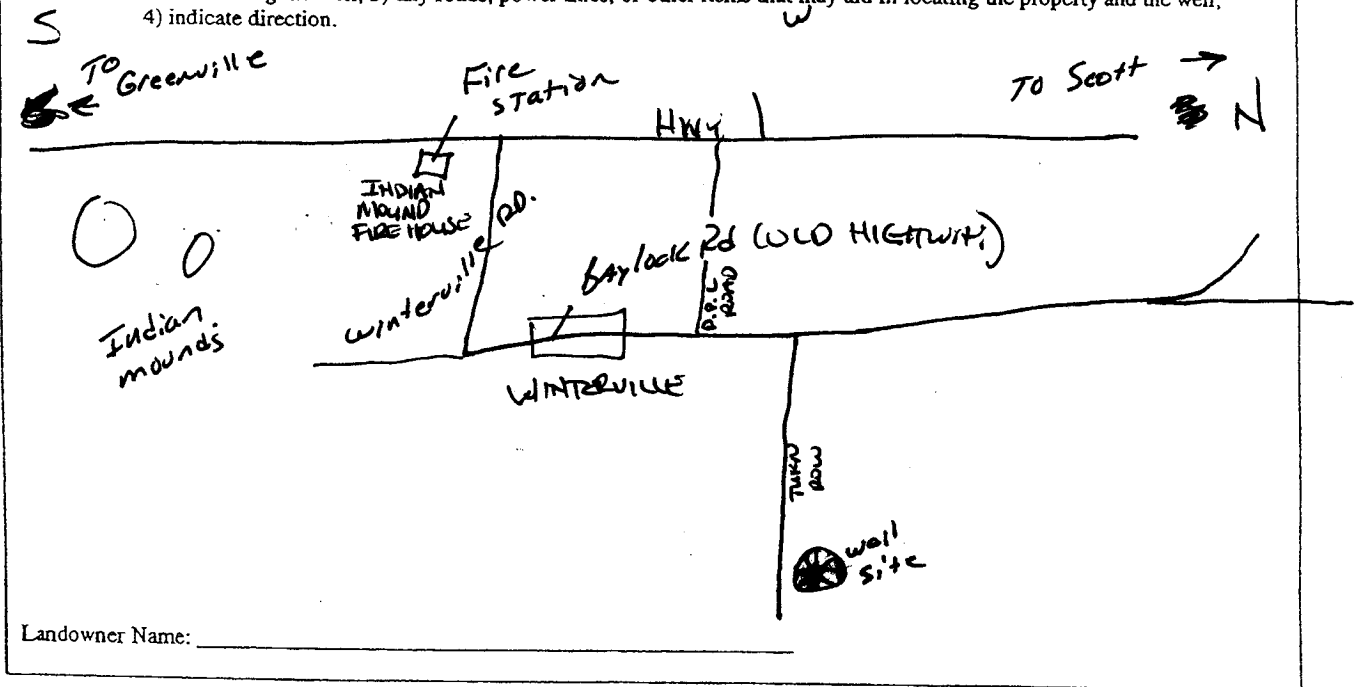 4) indicate direction.
S
W
TO
Greenville
Fire
Station
TO Scott
N
HWY 1
INDIAN
MOUND
FIRE HOUSE
Winterville RD.
Baylock Rd (OLD HIGHWAY)
D.P.L
ROAD
Indian
mounds
WINTERVILLE
TURN
ROW
well
site
Landowner Name: